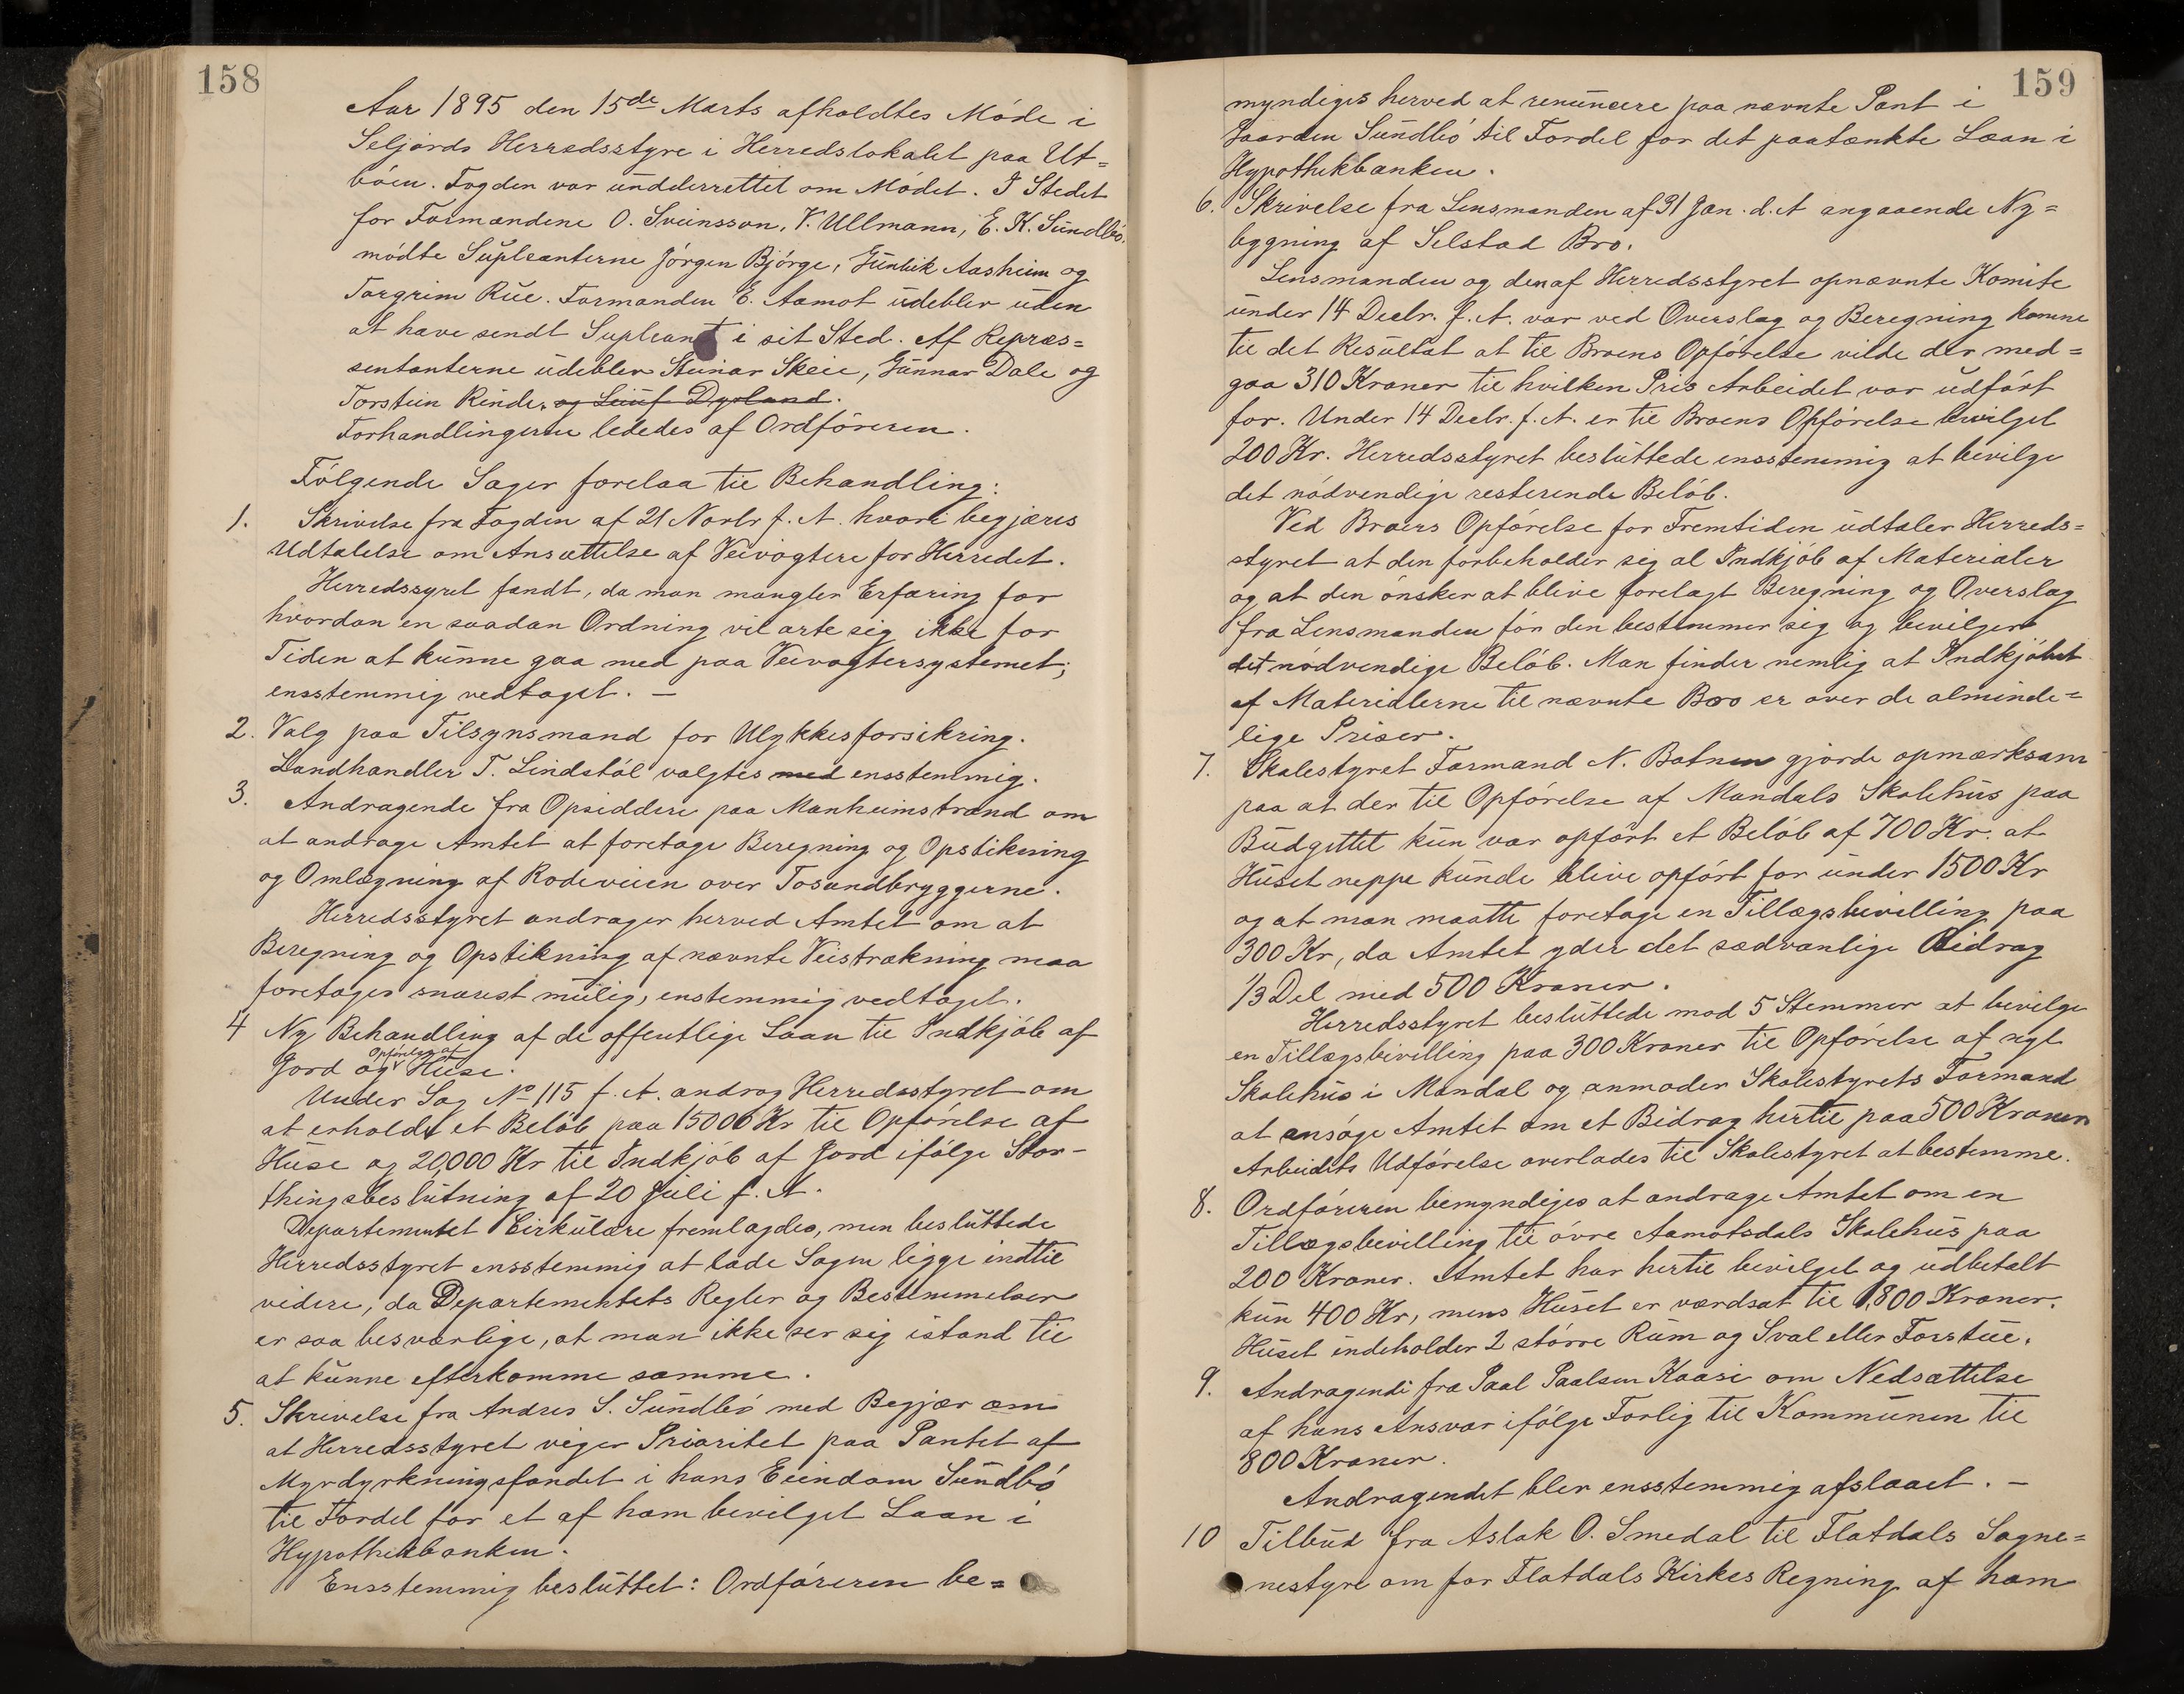 158
Aar 1895 den 15de Marts afholdtes Möde i
Seljords Herredsstyre i Herredslokalet paa Ut=
böen. Fogden var undderrettet om Mödet. I Stedet
for Formændene O. Sveinsson, V. Ullmann, E. K. Sundbö,
mödte Supleanterne Jörgen Björge, Gunleik Aasheim og
Torgrim Rue. Formanden E. Aamot udeblev uden
at have sendt Supleant i sit Sted. Af Repræs=
sentanterne udeblev Steinar Skeie, Gunnar Dale og
Torstein Rinde. og Leiuf Dyrland.
Forhandlingerne lededes af Ordföreren.
Fölgende Sager forelaa til Behandling:
1. Skrivelse fra Fogden af 21 Novbr f. A. hvori begjæres
Udtalelse om Ansættelse af Veivogtere for Herredet.
Herredssyret fandt, da man mangler Erfaring for
hvordan en saadan Ordning vil arte sig ikke for
Tiden at kunne gaa med paa Veivogtersystemet;
ensstemmig vedtaget. —
2. Valg paa Tilsynsmand for Ulykkesforsikring.
Landhandler T. Lindstöl valgtes med ensstemmig.
3. Andragende fra Opsiddere paa Manheimstrand om
at andrage Amtet at foretage Beregning og Opstikning
og Omlægning af Rodeveien over Tosundbryggerne.
Herredsstyret andrager herved Amtet om at
Beregning og Opstikning af nævnte Veistrækning maa
foretages snarest mulig, enstemmig vedtaget.
4 Ny Behandling af de offentlige Laan til Indkjöb af
Jord og Opförelse af Huse.
Under Sag No 115 f. A. androg Herredsstyret om
at erholdt et Belöb paa 15000 Kr til Opförelse af
Huse og 20,000 Kr til Indkjöb af Jord ifölge Stor-
thingsbeslutning af 20 Juli f. A.
Departementet Cirkulære fremlagdes, men besluttede
Herredsstyret ensstemmig at lade Sagen ligge indtil
videre, da Departementets Regler og Bestemmelser
er saa besværlige, at man ikke ser sig istand til
at kunne efterkomme samme.
5. Skrivelse fra Andres S. Sundbö med Begjær om
at Herredsstyret viger Prioritet paa Pantet af
Myrdyrkningsfondet i hans Eiendom Sundbö
til Fordel for et af ham bevilget Laan i
Hypothekbanken.
Ensstemmig besluttet: Ordföreren be=
159
myndiges herved at renuncere paa nævnte Pant i
Gaarden Sundbö til Fordel for det paatænkte Laan i
Hypothekbanken.
6. Skrivelse fra Lensmanden af 31 Jan. d. A angaaende Ny=
bygning af Selstad Bro.
Lensmanden og den af Herredsstyret opnævnte Komite
under 14 Decbr. f. A. var ved Overslag og Beregning komne
til det Resultat at til Broens Opförelse vilde der med=
gaa 310 Kroner til hvilken Pris Arbeidet var udfört
for. Under 14 Decbr. f. A. er til Broens Opförelse bevilget
200 Kr. Herredsstyret besluttede ensstemmig at bevilge
det nödvendige resterende Belöb.
Ved Broers Opförelse for Fremtiden udtaler Herreds=
styret at den forbeholder sig al Indkjöb af Materialer
og at den önsker at blive forelagt Beregning og Overslag
fra Lensmanden för den bestemmer sig og bevilger
det nödvendige Belöb. Man finder nemlig at Indkjöbet
af Materialerne til nævnte Bro er over de alminde=
lige Priser.
7. Skolestyret Formand N. Botnen gjorde opmærksam
paa at der til Opförelse af Mandals Skolehus paa
Budgettet kun var opfört et Belöb af 700 Kr. at
Huset neppe kunde blive opfört for under 1500 Kr
og at man maatte foretage en Tillægsbevilling paa
300 Kr, da Amtet yder det sædvanlige Bidrag
1/3 Del med 500 Kroner.
Herredsstyret besluttede mod 5 Stemmer at bevilge
en Tillægsbevilling paa 300 Kroner til Opförelse af nyt
Skolehus i Mandal og anmoder Skolestyrets Formand
at ansöge Amtet om et Bidrag hertil paa 500 Kroner
Arbeidets Udförelse overlades til Skolestyret at bestemme.
8. Ordföreren bemyndiges at andrage Amtet om en
Tillægsbevilling til övre Aamotsdals Skolehus paa
200 Kroner. Amtet har hertil bevilget og udbetalt
kun 400 Kr, mens Huset er værdsat til 1,800 Kroner.
Huset indeholder 2 större Rum og Sval eller Forstue.
9. Andragende fra Paal Paalsen Kaasi om Nedsættelse
af hans Ansvar ifölge Forlig til Kommunen til
800 Kroner.
Andragendet blev ensstemmig afslaaet. —
10 Tilbud fra Aslak O. Smedal til Flatdals Sogne=
nestyre om for Flatdals Kirkes Regning af ham